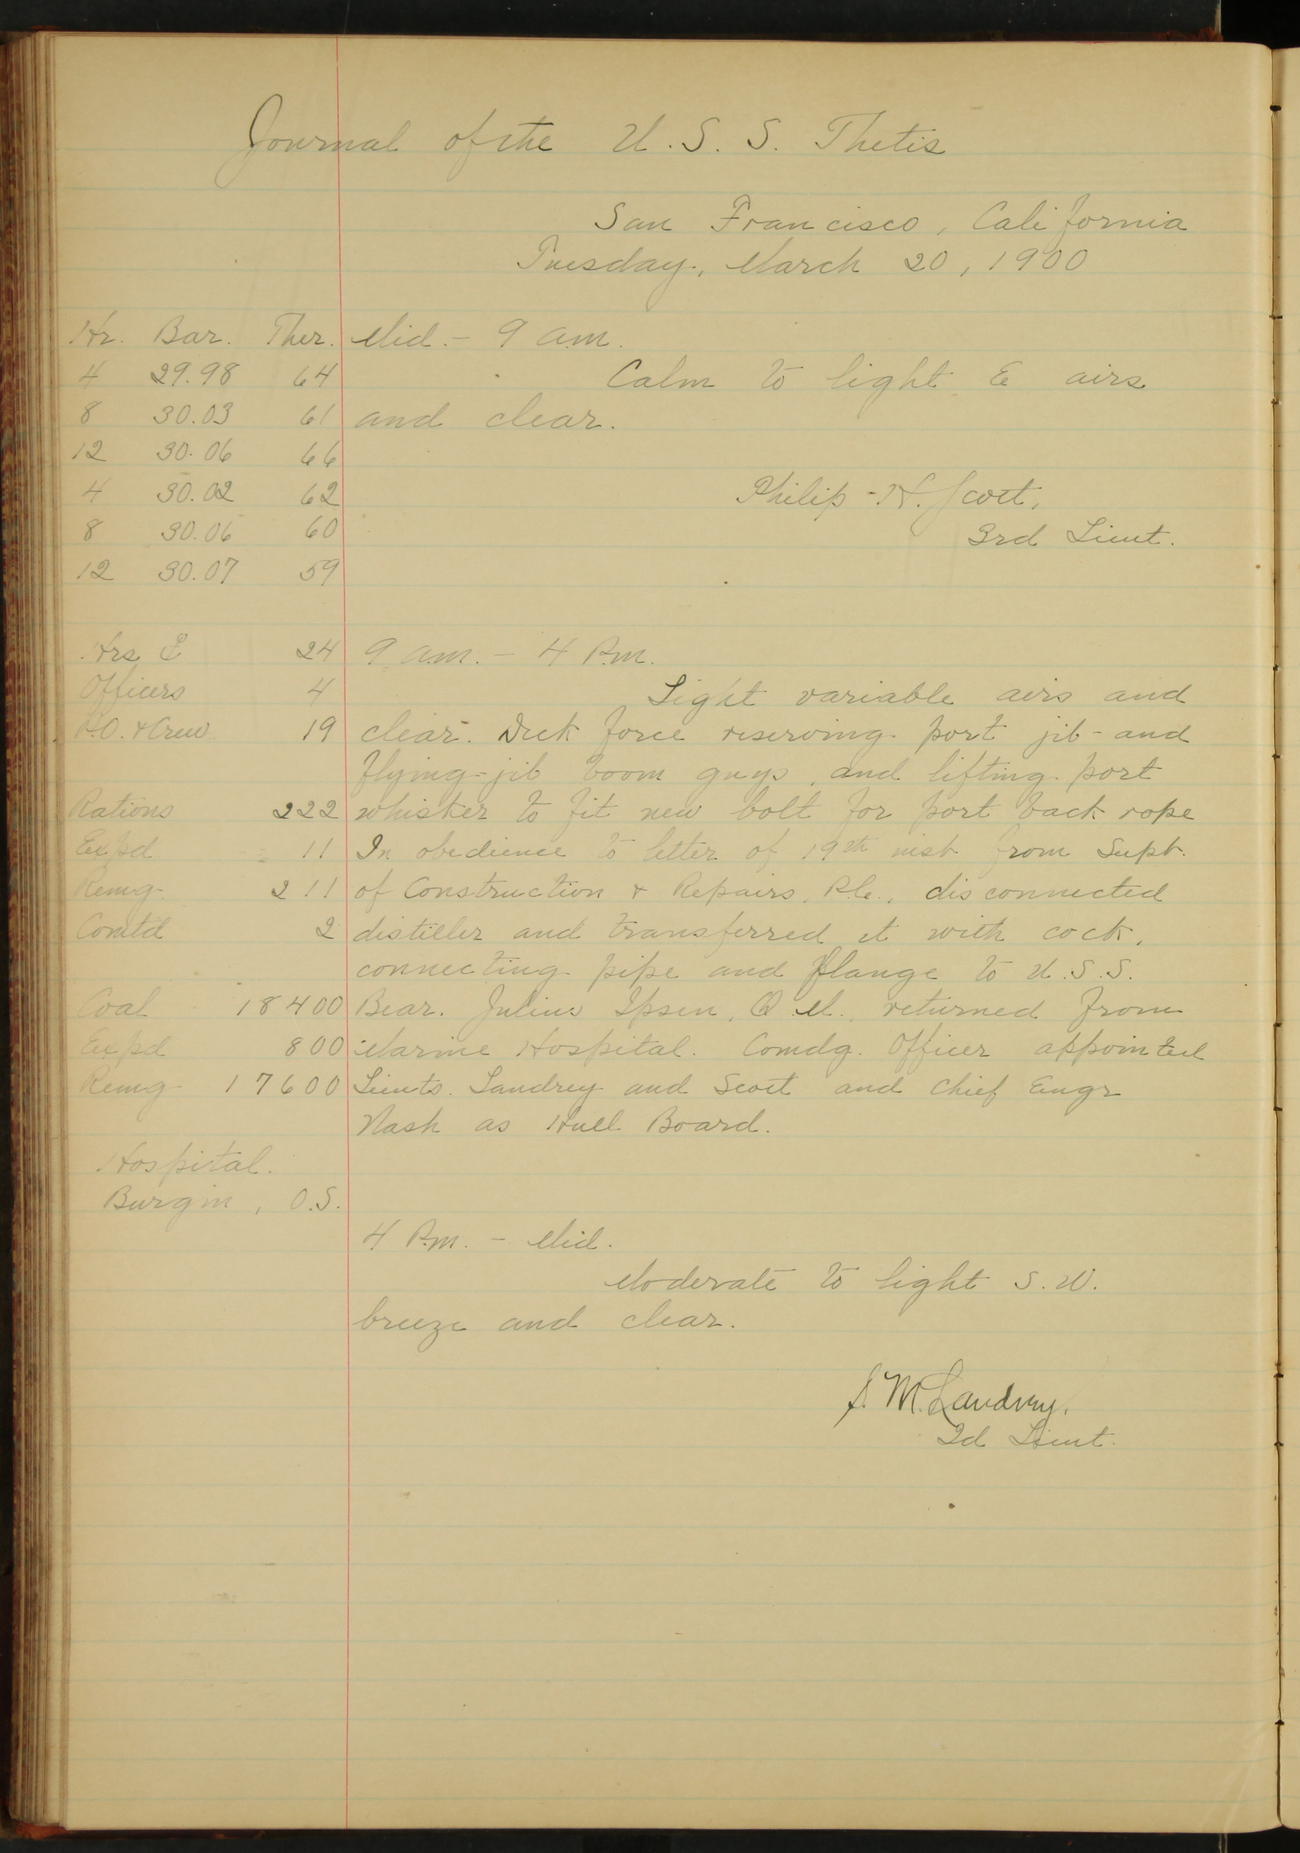 Journal of the U. S. S. Thetis
San Francisco, California
Tuesday, March 20, 1900
Hr. Bar. Ther. Mid. - 9 a.m.
4 29.98 64 Calm to light E airs
8 30.03 61 and clear.
12 30.06 66
4 30.02 62 Philip H. Scott,
8 30.06 60 3rd Lieut.
12 30.07 59
Hrs 24 9 a.m. - 4 P.m.
Officers 4 Light variable airs and
P.O. & Crew 19 clear. Deck force reserving port jib- and
flying-jib boom guys, and lifting port
Rations 222 whisker to fit new bolt for port back rope
Expd 11 In obedience to letter of 19th inst from Supt.
Remg 211 of Construction & Repairs, R.C., disconnected
Comtd 2 distiller and transferred it with cock,
connecting pipe and flange to U. S. S.
Coal 18400 Bear. Julius Ipsen, Q.M., returned from
Expd 800 Marine Hospital. Comdg. Officer appointed
Remg 17600 Lieuts. Landrey and Scott and Chief Engr
Nash as Hull Board.
Hospital.
Burgin, O.S.
4 P.m. - Mid.
Moderate to light S. W.
breeze and clear.
S. M. Landrey,
2d Lieut.